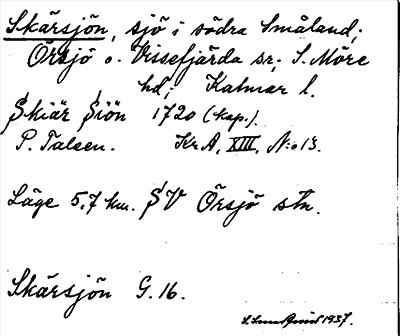 Skärsjön, sjö i södra Småland;
Örsjö o. Vissefjärda sr; S. Möre
hd; Kalmar l.
Skiär Siön 1720 (kap.).
P. Talsen. Kr A, XIII, N:o 13.
Läge 5,7 km. SV Örsjö stn.
Skärsjön G. 16.
1937.